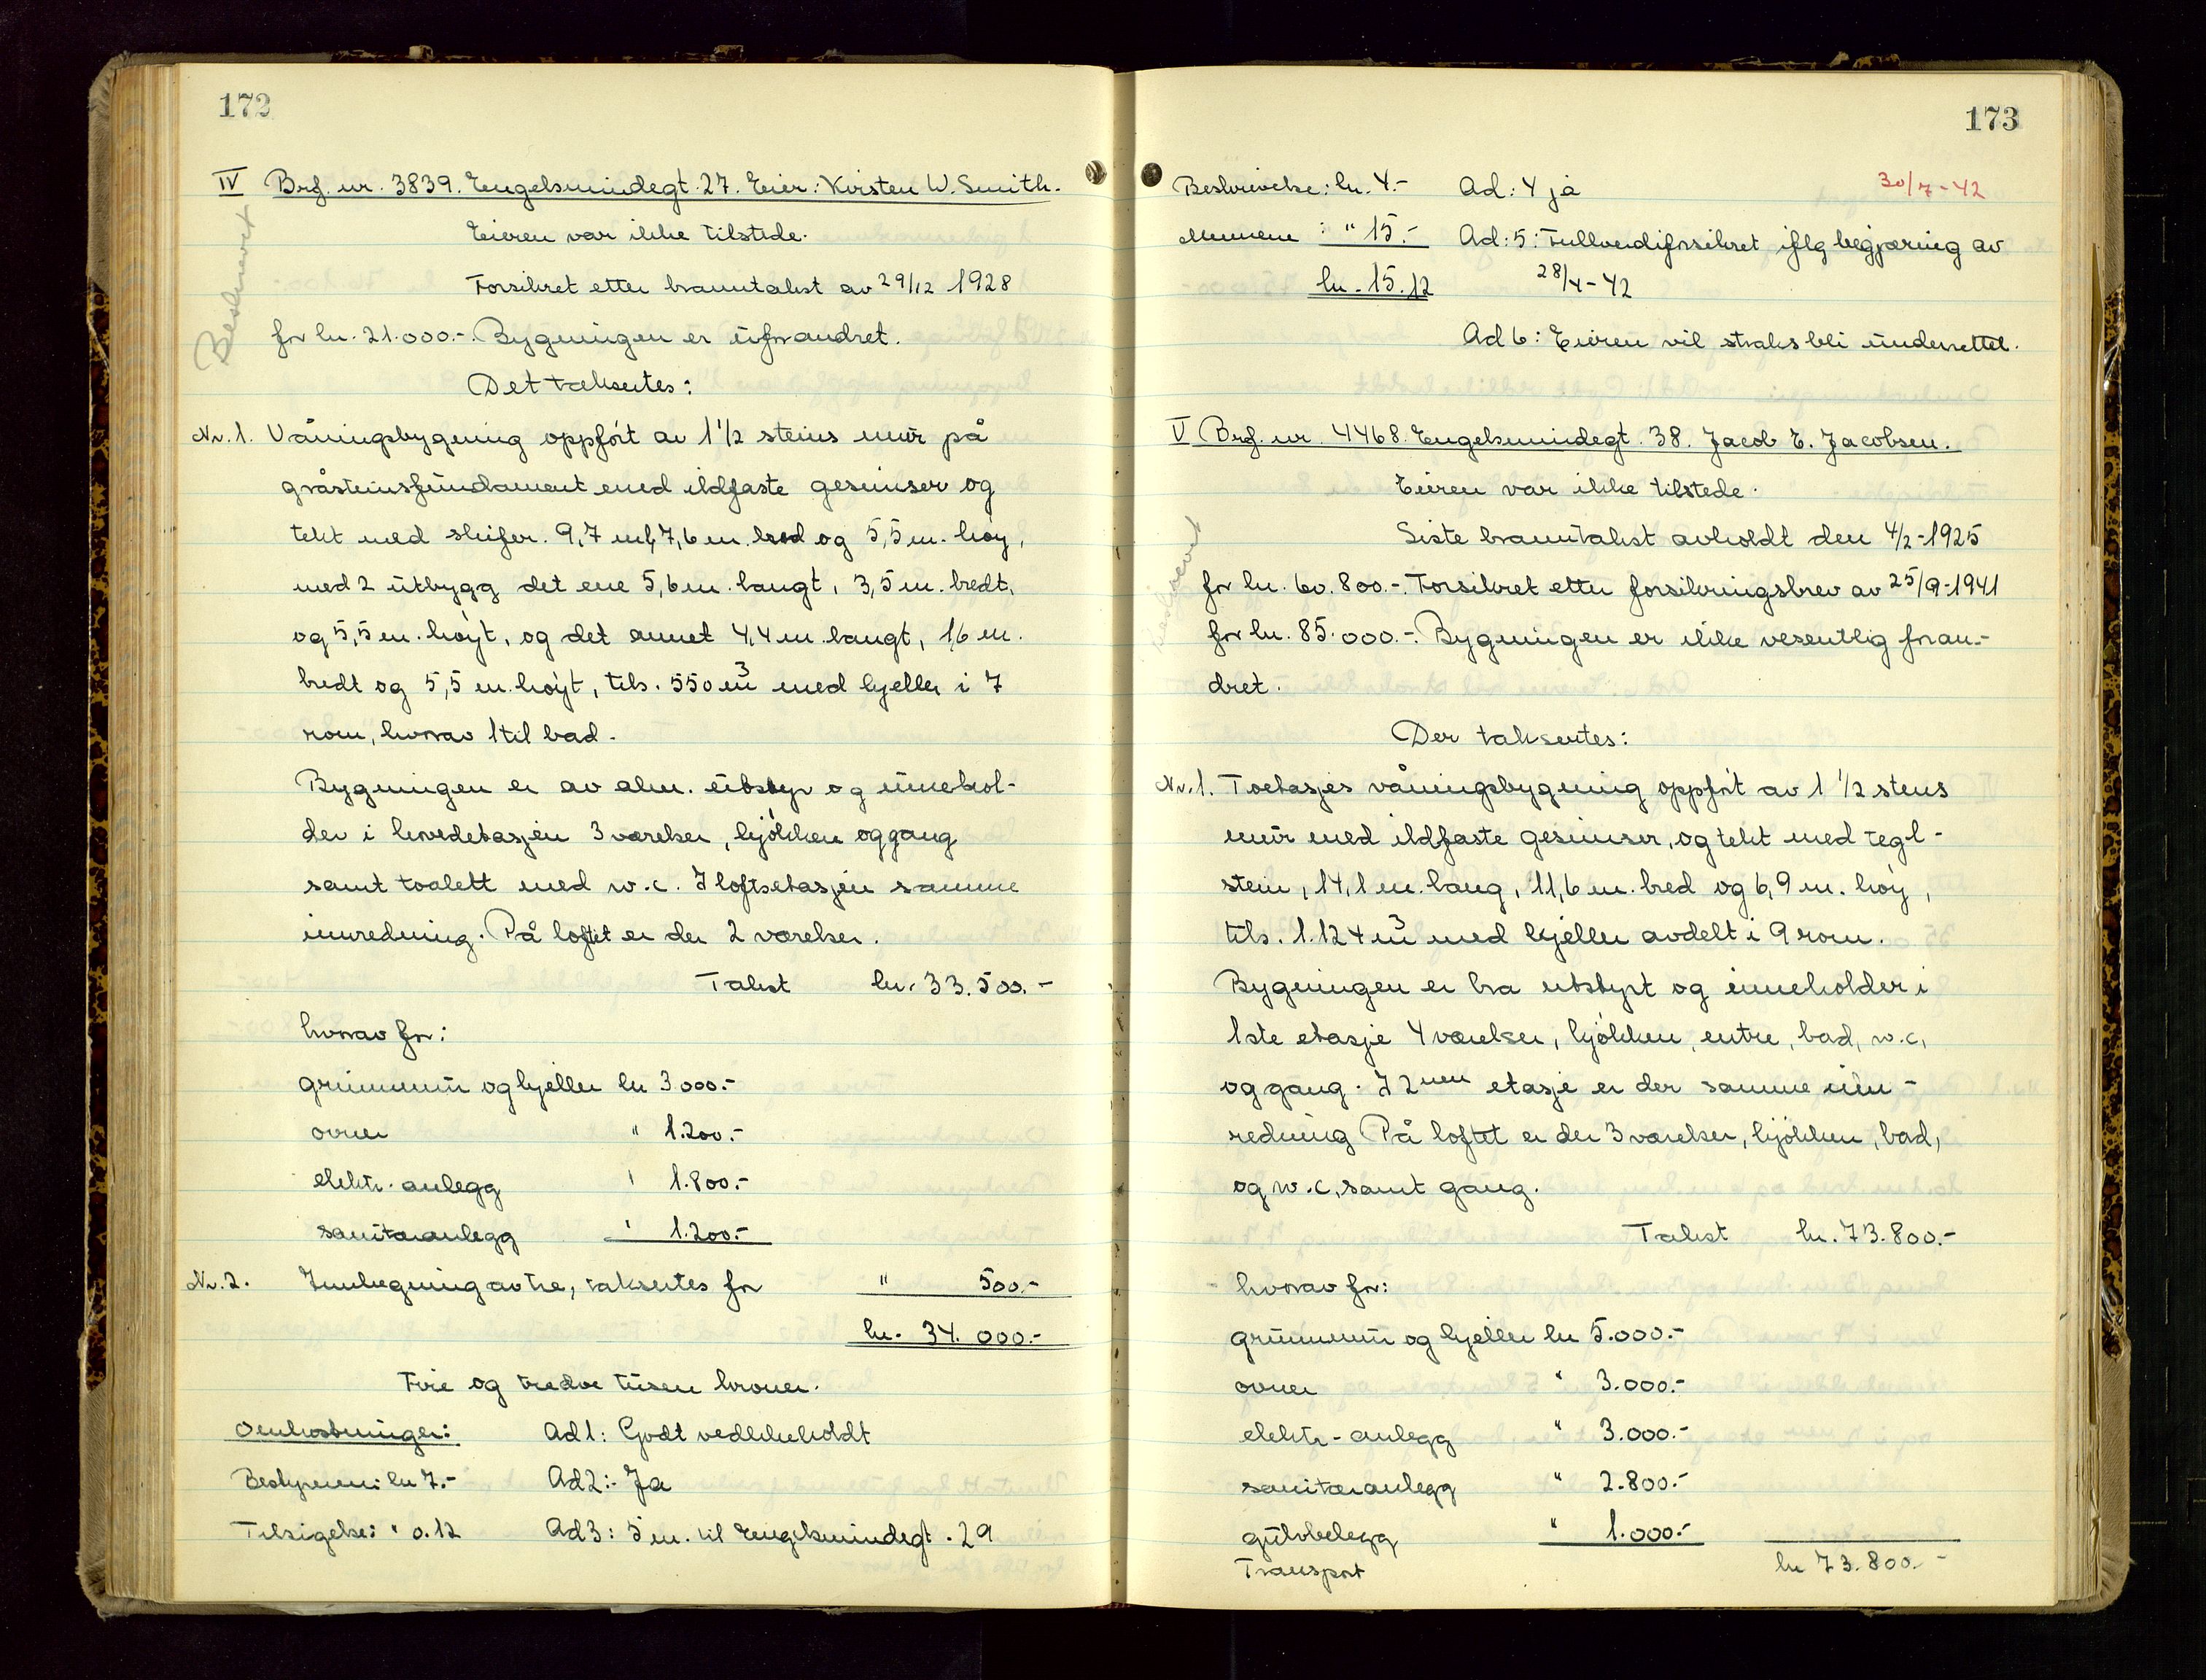 172
IV Brf. nr. 3839. Engelsmindegt. 27. Eier: Kirsten W. Smith.
Eieren var ikke tilstede.
Forsikret etter branntakst av 29/12 1928
for kr. 21.000.-. Bygningen er uforandret.
Beskrevet
Det taksertes:
Nr. 1. Våningsbygning oppført av 1 1/2 steins mur på
gråsteinsfundament med ildfaste gesimser og
tekt med skifer. 9,7 m l, 7,6 m. bred og 5,5 m. høy,
med 2 utbygg det ene 5,6 m. langt, 3,5 m. bredt,
og 5,5 m. høyt, og det annet 4,4 m. langt, 1,6 m.
bredt og 5,5 m. høyt, tils. 550 m³ med kjeller i 7
rom, hvorav 1 til bad.
Bygningen er av alm. utstyr og innehol-
der i hovedetasjen 3 værelser, kjøkken og gang
samt toalett med w.c. I loftsetasjen samme
innredning. På loftet er der 2 værelser.
Takst kr. 33.500.-
hvorav for:
grunnmur og kjeller kr 3.000.-
ovner " 1.200.-
elektr. anlegg " 1.800.-
sanitæranlegg " 1.200.-
Nr. 2. Innhegning av tre, taksertes for " 500.-
kr. 34.000.-
Fire og tredve tusen kroner.
Omkostninger: Ad 1: Godt vedlikeholdt
Bestyreren: kr 7.- Ad 2:- Ja
Tilsigelse: " 0.12 Ad 3: 5 m. til Engelsmindegt. 29
173
Beskrivelse: kr. 4.- Ad: 4 ja 30/7-42
Mennene : " 15.- Ad: 5: Fullverdiforsikret iflg begjæring av
kr. 15.12 28/4-42
Ad 6: Eieren vil straks bli underrettet.
V Brf. nr. 4468. Engelsmindegt. 38. Jacob E. Jacobsen.
Eieren var ikke tilstede.
Siste branntakst avholdt den 4/2-1925
for kr. 60.800.-. Forsikret etter forsikringsbrev av 25/9-1941
for kr. 85.000.-. Bygningen er ikke vesentlig foran-
dret.
Der taksertes:
Nr. 1. Toetasjes våningsbygning oppført av 1 1/2 stens
mur med ildfaste gesimser, og tekt med tegl-
stein, 14,1 m. lang, 11,6 m. bred og 6,9 m. høy,
tils. 1.124 m³ med kjeller avdelt i 9 rom.
Bygningen er bra utstyrt og inneholder i
1ste etasje 4 værelser, kjøkken, entre, bad, w.c,
og gang. I 2nen etasje er der samme inn-
redning På loftet er der 3 værelser, kjøkken, bad,
og w.c, samt gang.
Takst kr. 73.800.-
hvorav for:
grunnmur og kjeller kr 5.000.-
ovner " 3.000.-
elektr-anlegg " 3.000.-
sanitæranlegg " 2.800.-
gulvbelegg " 1.000.-
Transport kr 73.800.-